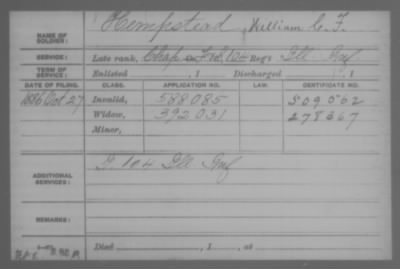 NAME OF SOLDIER: Hempstead, William C. F.
SERVICE: Late rank, Chap 104 Reg't Ill Inf
TERM OF SERVICE: Enlisted , 1 Discharged , 1
DATE OF FILING. CLASS. APPLICATION NO. LAW. CERTIFICATE NO.
1886 Oct 27 Invalid, 588085 509062
Widow, 392031 278367
Minor,
ADDITIONAL SERVICES: G 104 Ill Inf
REMARKS:
Died , 1 , at